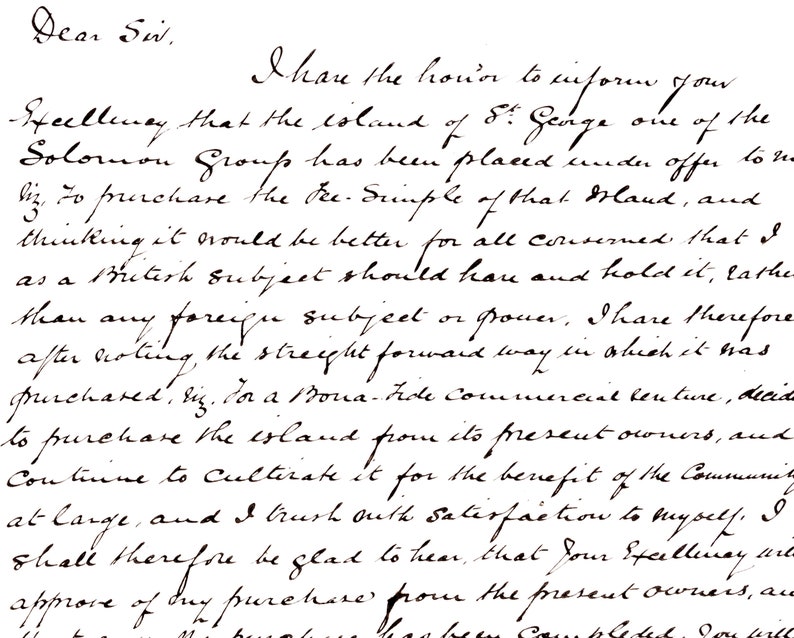 Dear Sir,
I have the honor to inform your
Excellency that the island of St. George one of the
Solomon Group has been placed under offer to
Viz, To purchase the Fee-Simple of that Island, and
thinking it would be better for all conserned that I
as a British subject should have and hold it, rathe
than any foreign subject or power, I have therefore
after noting the straight forward way in which it was
purchased, Viz. For a Bona-Fide commercial venture, decid
to purchase the island from its present owners, and
continue to cultivate it for the benefit of the Community
at large, and I trust with satisfaction to myself. I
shall therefore be glad to hear, that Your Excellency will
approve of my purchase from the present owners, an
has been completed. You will